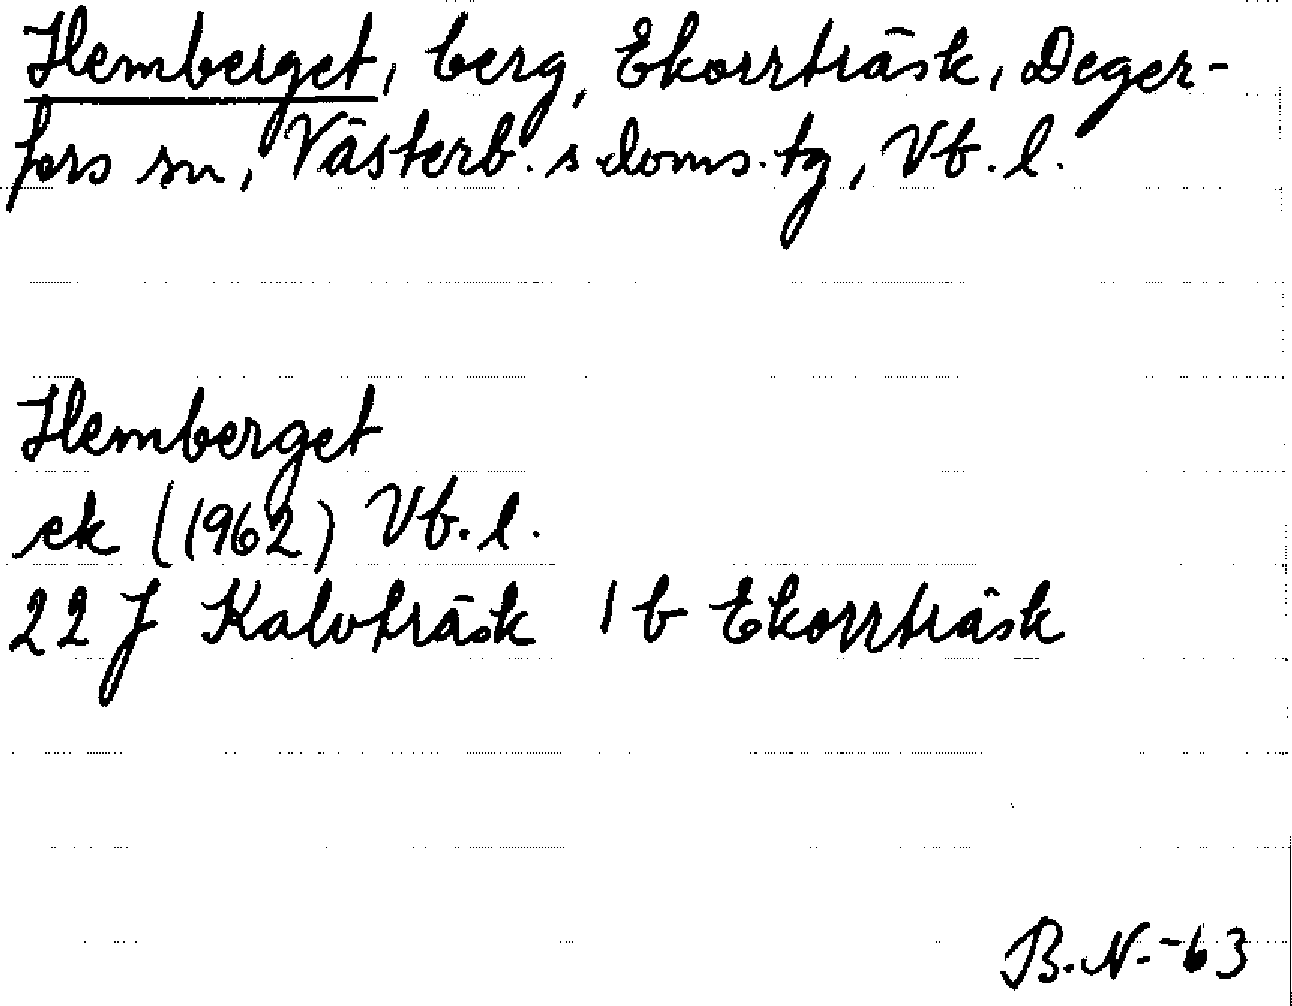 Hemberget, berg, Ekorrträsk, Deger-
fors sn, Västerb. s doms. tg, Vb. l.
Hemberget
ek (1962) Vb. l.
22 J Kalvträsk 1 b Ekorrträsk
B.N.-63